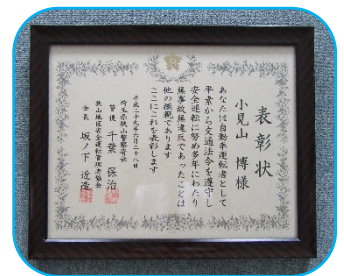 表彰状
小見山 博 様
あなたは自動車運転者として
平素から交通法令を遵守し
安全運転に努め多年にわたり
無事故無違反であったことは
他の模範であります
ここにこれを表彰します
平成二十九年六月二十八日
埼玉県狭山警察署長
警視 千葉 保治
狭山地区安全運転管理者協会
会長 坂ノ下